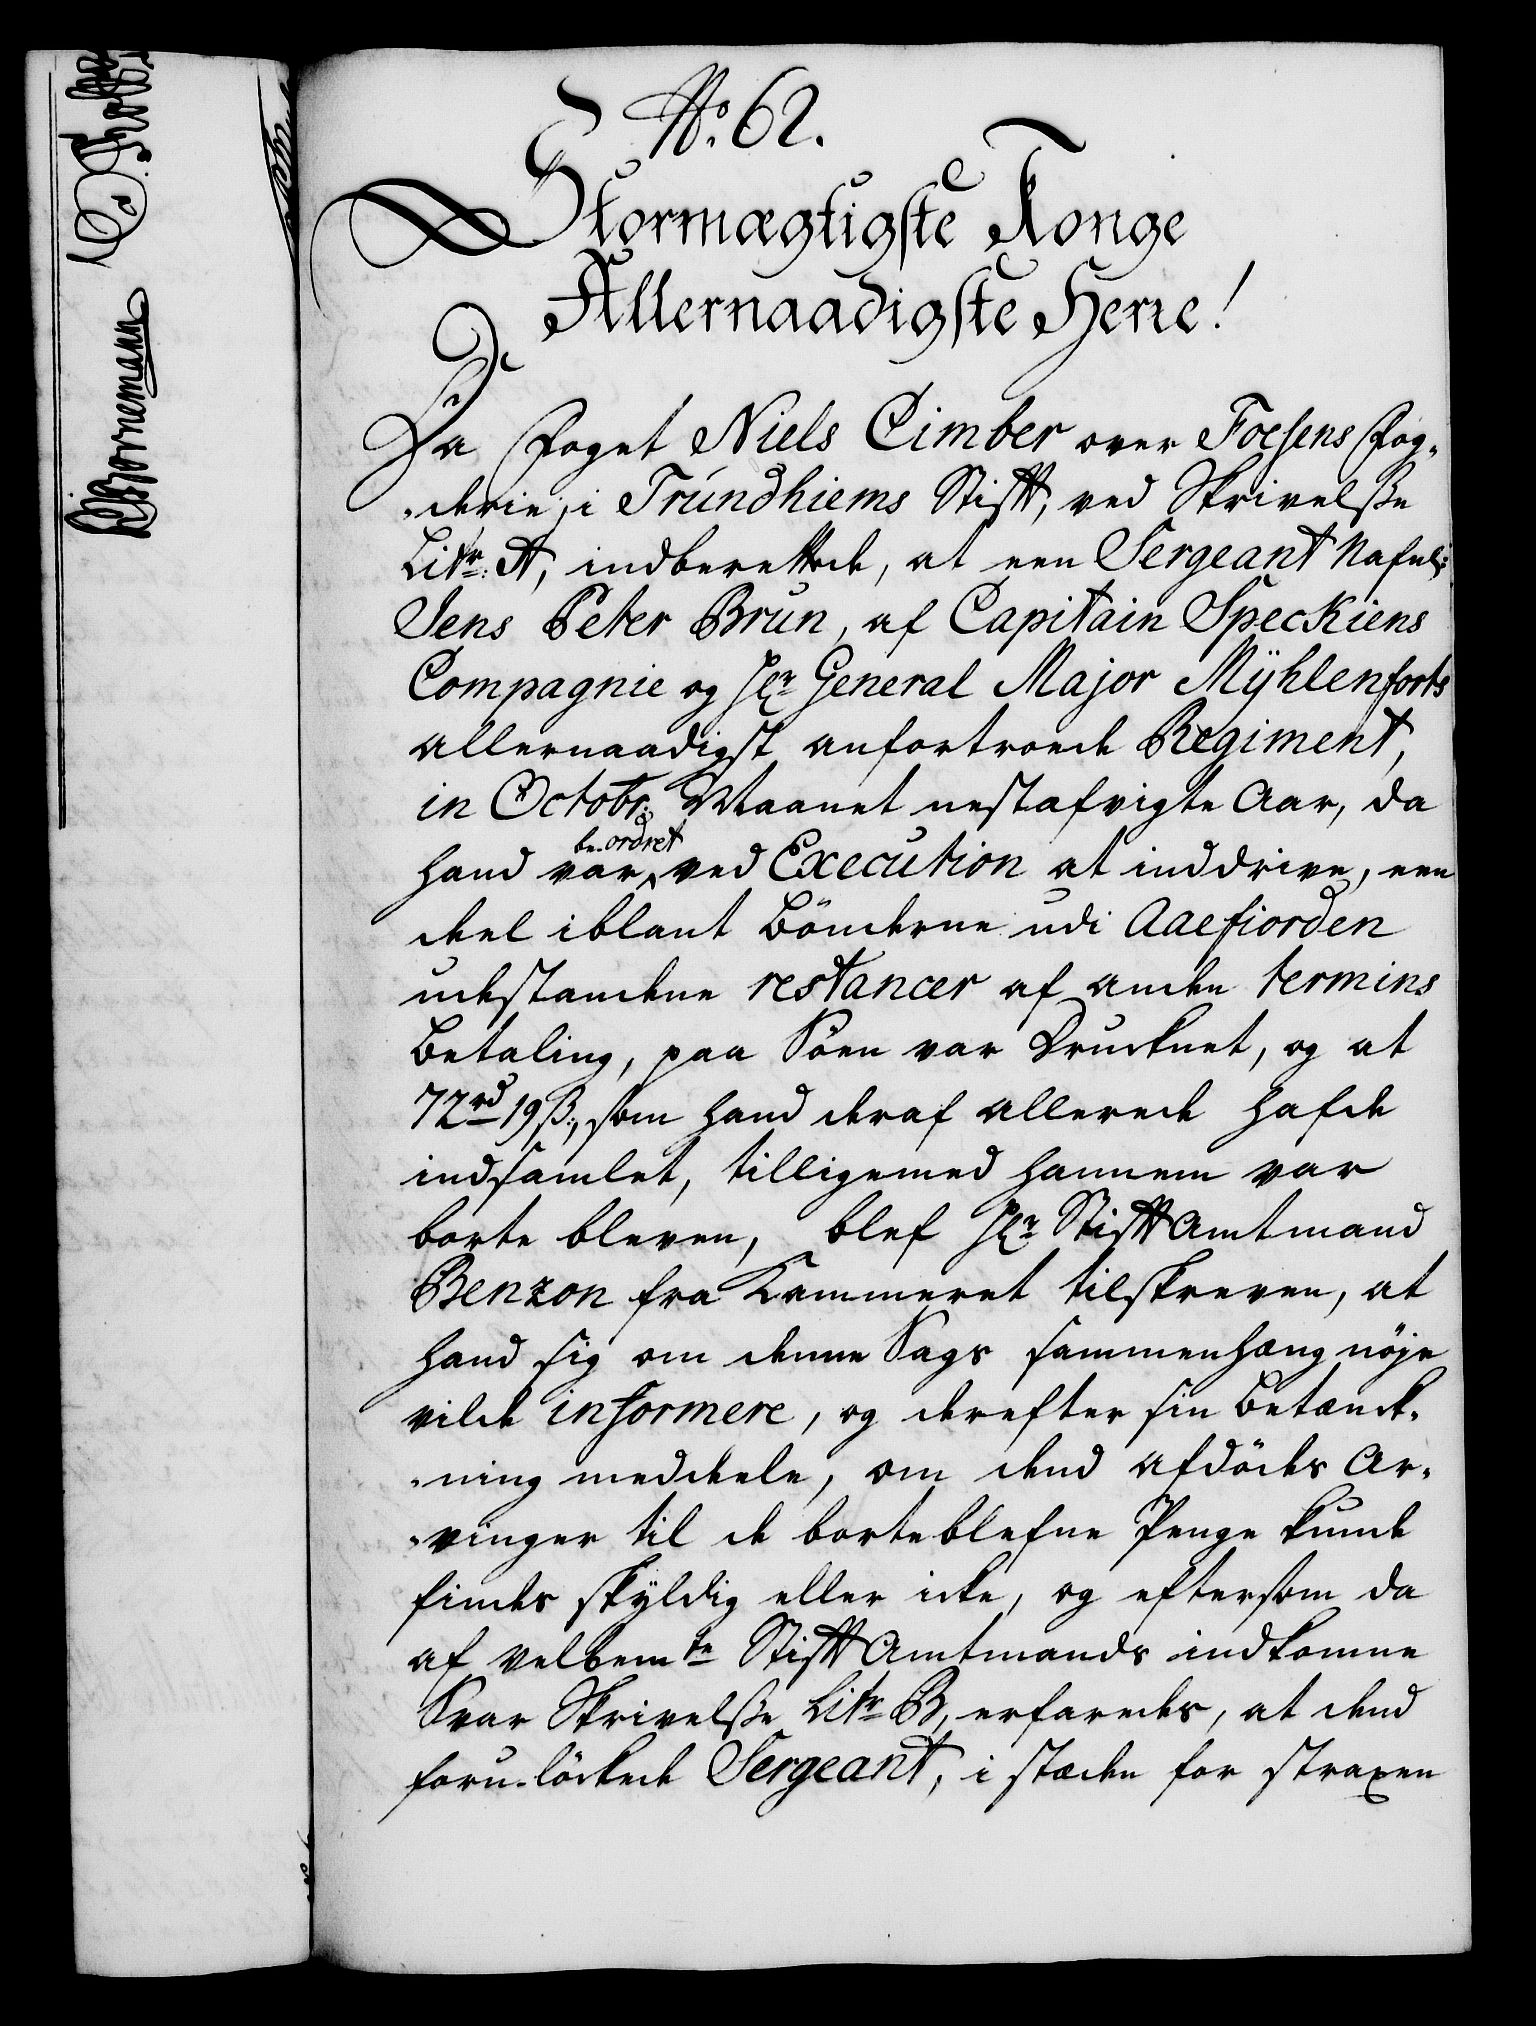 No. 62.
Stormægtigste Konge
Allernaadigste Herre!
Da Foget Niels Cimber over Foesens Fog-
-derie, i Trundhiems Stift, ved Skrivelsße
Litr: A, indberettede, at een Sergeant Nafnl:
Jens Peter Brun, af Capitain Speckiens
Compagnie og Hr General Major Mÿhlenforts
allernaadigst anfortroede Regiment,
in Octobr: Maanet nestafvigte Aar, da
hand var beordret ved Execution at inddrive, een
deel iblant Bönderne udi Aaefiorden
udestaaende restancer af anden termins
Betaling, paa Söen var Drucknet, og at
72rd 19ß, som hand deraf allerede hafde
indsamlet, tilligemed hannem var
borte bleven, blef Hr StiftAmtmand
Benzon fra Kammeret tilskreven, at
hand sig om denne Sags sammenhæng nöje
vilde informere, og derefter sin Betænck-
-ning meddeele, om dend afdödes Ar-
-vinger til de borteblefne Penge kunde
findes skÿldig eller icke, og eftersom da
af velbemte StiftAmtmands indkomne
Svar Skrivelsße Litr B, erfaredes, at dend
foru-löckede Sergeant, i stæden for straxen
Bornemann